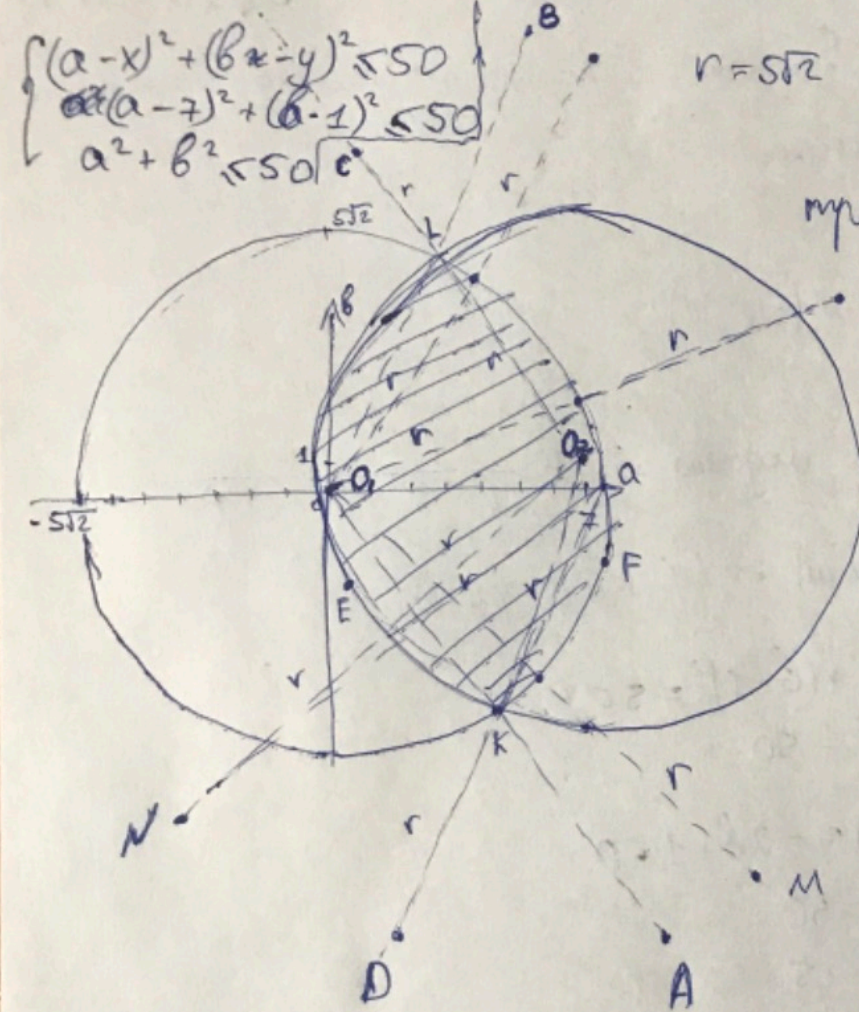 (a-x)² + (bx-y)² ≤ 50
(a-7)² + (b-1)² ≤ 50
a² + b² ≤ 50
r = 5√2
B
C
r
r
5√2
L
b
r
r
r
r
1
O₁
O₂
a
-5√2
0
7
r
r
r
E
F
r
K
N
r
r
M
D
A